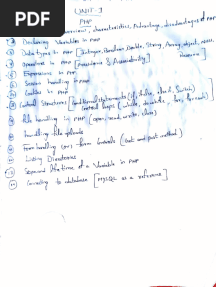 PDF
UNIT-1
PHP
characteristics, Advantage, disadvantages of PHP
Declaring Variables in PHP
Data types in PHP [Integer, Boolean, Double, String, Array, object, NULL,
Resource]
Operators in PHP [Precedence & Associativity]
Expressions in PHP
Session handling in PHP
Cookies in PHP
Control Structures [Conditional statements (if, else, elseif, Switch)
Control loops (while, do while, for, for each)]
File handling in PHP (open, read, write, close)
handling file uploads
Form handling form Controls (Get and post method)
Listing Directories
Scope and lifetime of a Variable in PHP
Connecting to database [MySQL as a reference]